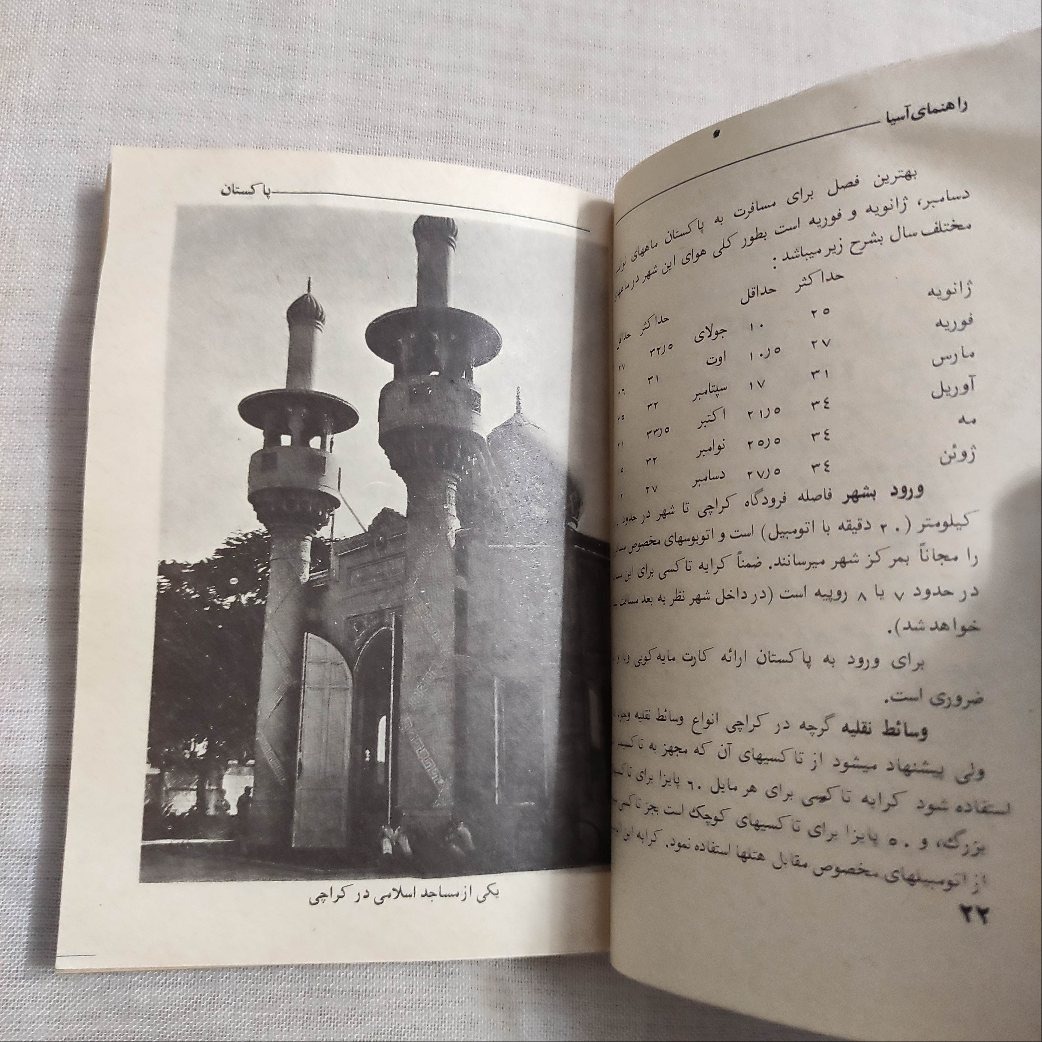 راهنمای آسیا
بهترین فصل برای مسافرت به پاکستان ماههای
دسامبر، ژانویه و فوریه است بطور کلی هوای این شهر در ماههای
مختلف سال بشرح زیر میباشد:
حداکثر حداقل حداکثر
ژانویه ۲۵ ۱۰ جولای ۳۲٫۵ ۲۷
فوریه ۲۷ ۱۰٫۵ اوت ۳۱
مارس ۳۱ ۱۷ سپتامبر ۳۲
آوریل ۳۴ ۲۱٫۵ اکتبر ۳۳٫۵
مه ۳۴ ۲۵٫۵ نوامبر ۳۲
ژوئن ۳۴ ۲۷٫۵ دسامبر ۲۷
ورود بشهر فاصله فرودگاه کراچی تا شهر در حدود
کیلومتر (۲۰ دقیقه با اتومبیل) است و اتوبوسهای مخصوص
را مجاناً بمرکز شهر میرسانند. ضمناً کرایه تاکسی برای این
در حدود ۷ یا ۸ روپیه است (در داخل شهر نظر به بعد مسافت
خواهد شد).
برای ورود به پاکستان ارائه کارت مایه کوبی
ضروری است.
وسائط نقلیه گرچه در کراچی انواع وسائط نقلیه
ولی پیشنهاد میشود از تاکسیهای آن که مجهز به
استفاده شود کرایه تاکسی برای هر مایل ۶۰ پایزا برای
بزرگ، و ۵۰ پایزا برای تاکسیهای کوچک است بجز
از اتومبیلهای مخصوص مقابل هتلها استفاده نمود. کرایه این
۲۲
پاکستان
یکی از مساجد اسلامی در کراچی